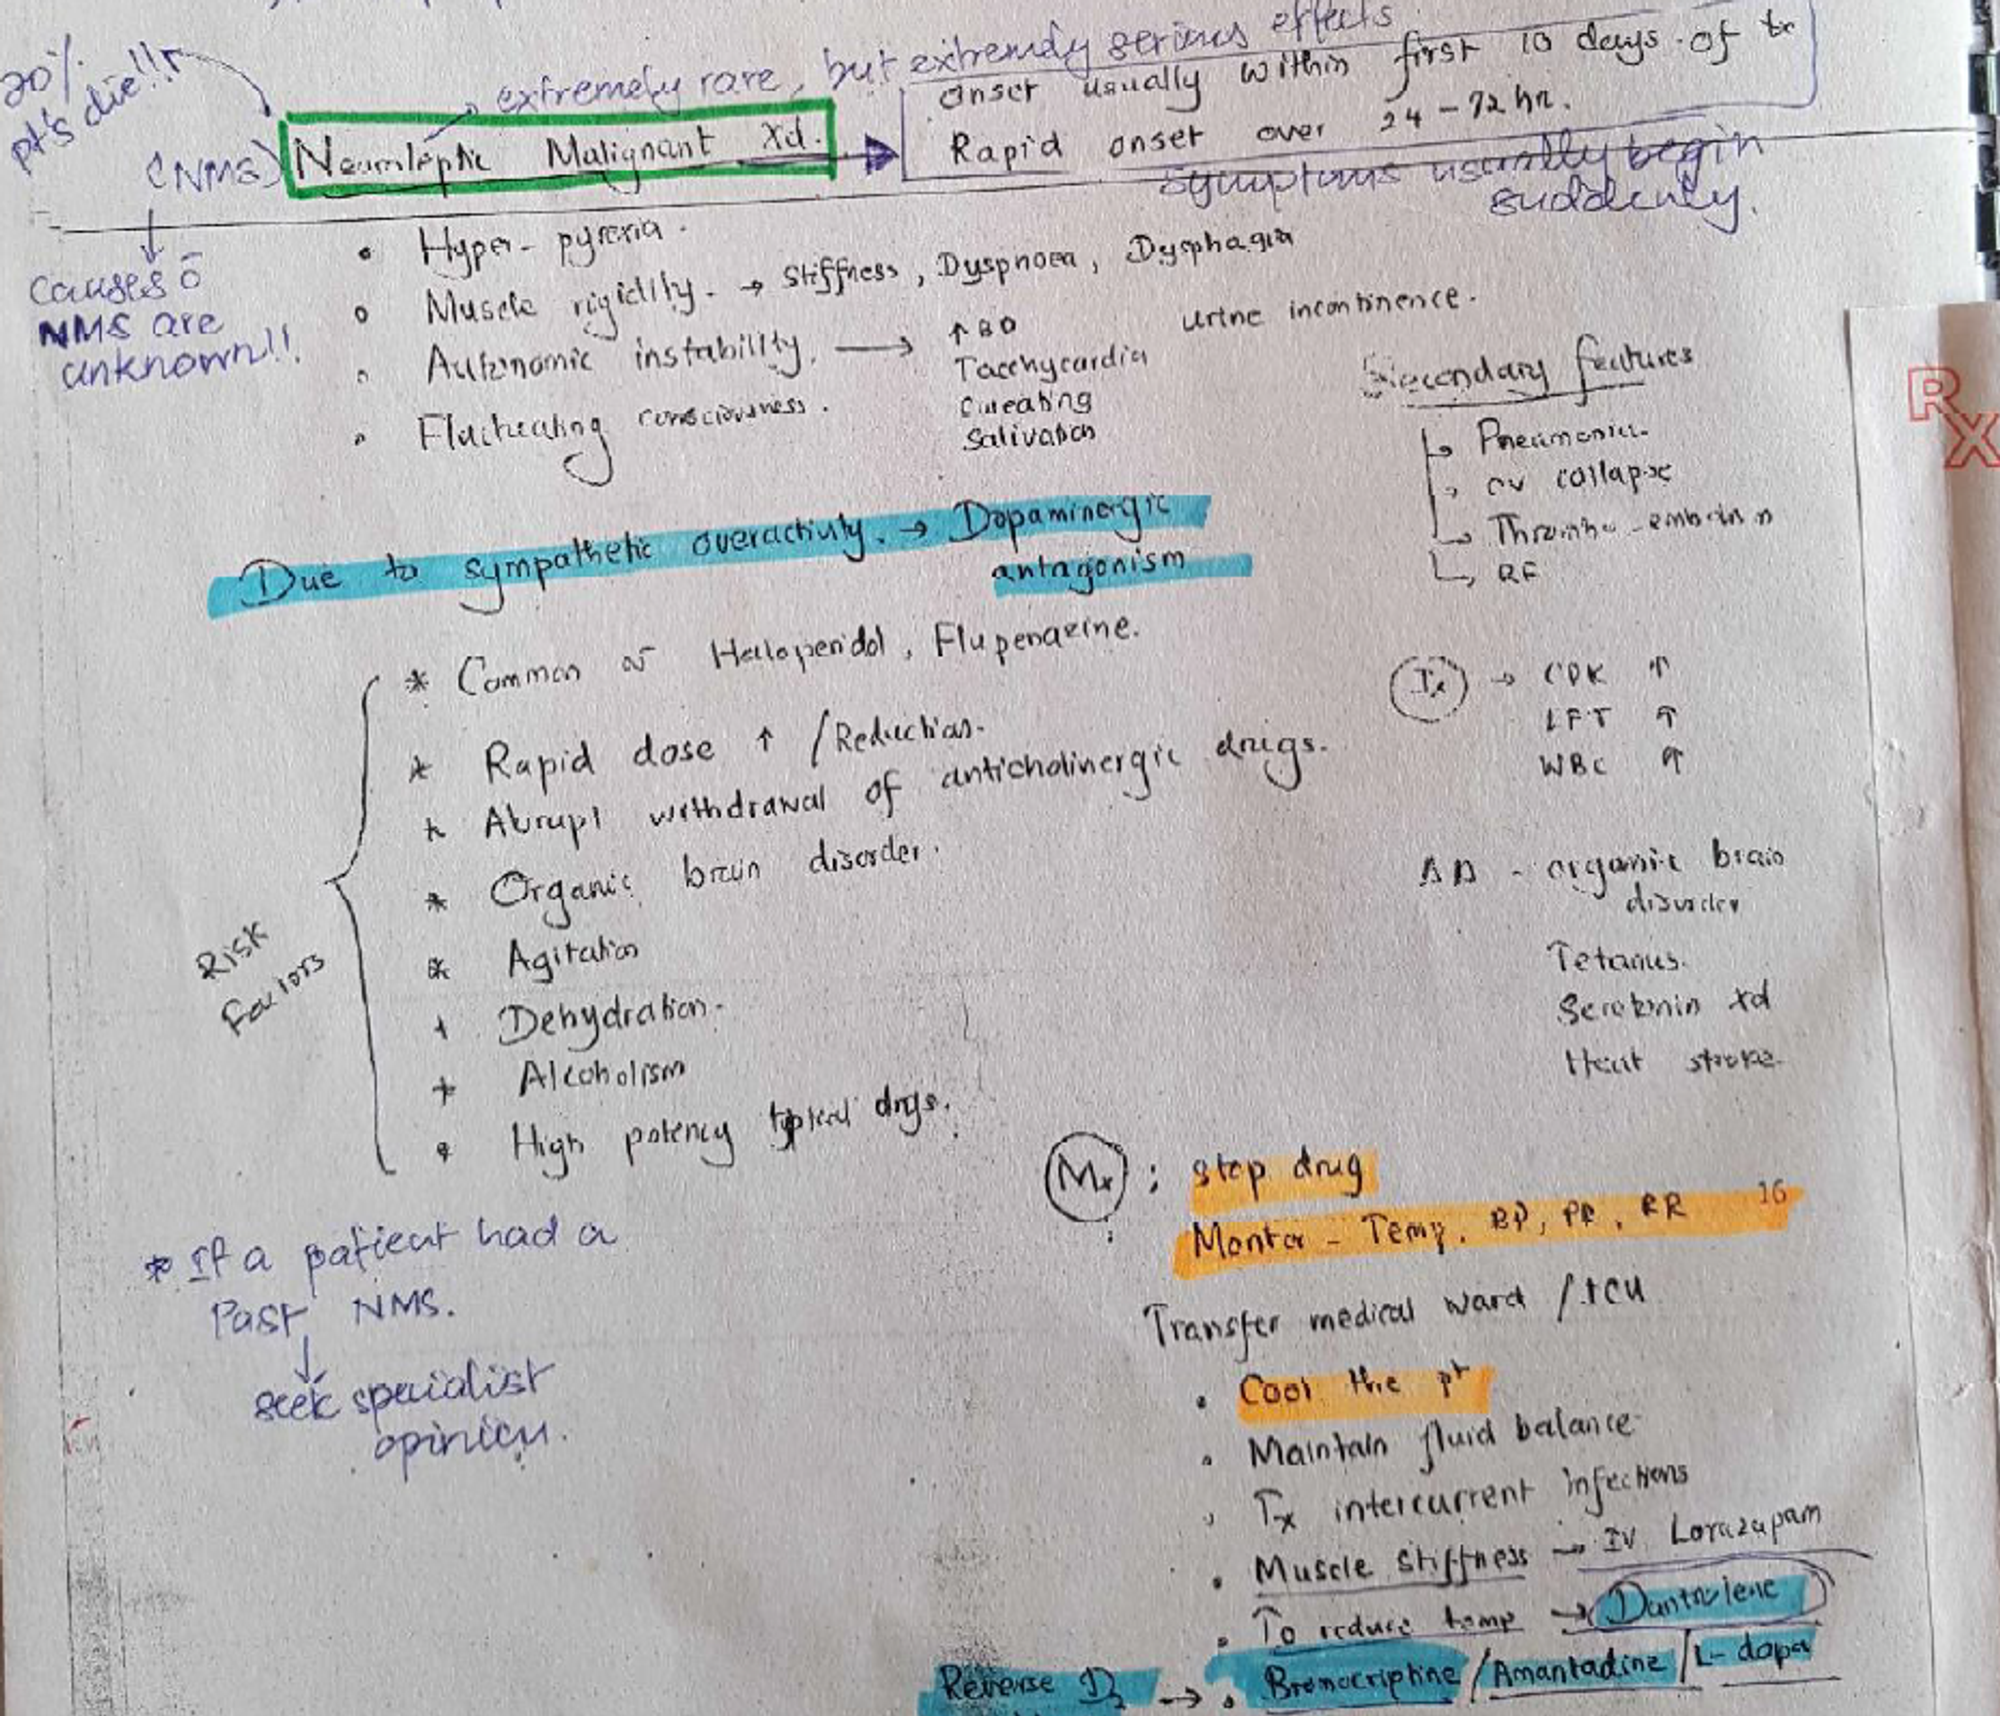 20%
pt's die!!
extremely rare, but extremely serious effects
onset usually within first 10 days of
Rapid onset over 24-72 hr.
symptoms usually begin
suddenly.
(NMS) Neuroleptic Malignant Xd.
causes ō
NMS are
unknown!!
Hyper-pyrexia.
Muscle rigidity. → Stiffness, Dyspnoea, Dysphagia
Autonomic instability. → ↑BP
Tacchycardia
Sweating
Salivation
urine incontinence.
Fluctuating consciousness.
Secondary features
Pneumonia
CV collapse
RF
Due to sympathetic overactivity. → Dopaminergic
antagonism
Risk
Factors
* Common Haloperidol, Flupenazine.
* Rapid dose ↑ /Reduction.
* Abrupt withdrawal of anticholinergic drugs.
* Organic brain disorder.
* Agitation
* Dehydration.
* Alcoholism
* High potency typical drugs.
Ix → CPK ↑
LFT ↑
WBC ↑
DD - organic brain
disorder
Tetanus.
Serotonin Xd
Heat stroke.
* If a patient had a
Past NMS.
↓
seek specialist
opinion.
Mx : stop drug
Monitor - Temp, BP, PR, RR
16
Transfer medical ward / ICU
Cool the pt
Maintain fluid balance
Tx intercurrent infections
Muscle stiffness → IV Lorazapam
To reduce temp → Dantrolene
Reverse D2 → Bromocriptine / Amantadine / L-dopa
Rx